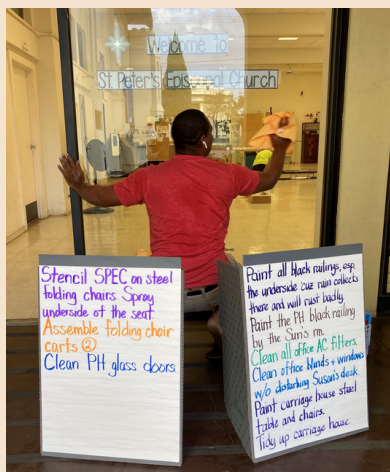 Welcome to
St. Peter's Episcopal Church
Stencil SPEC on steel
folding chairs. Spray
underside of the seat.
Assemble folding chair
carts ②
Clean PH glass doors.
Paint all black railings, esp.
the underside cuz rain collects
there and will rust badly.
Paint the PH black railing
by the Sun's rm.
Clean all office AC filters.
Clean office blinds + windows
w/o disturbing Susan's desk.
Paint carriage house steel
table and chairs.
Tidy up carriage house.